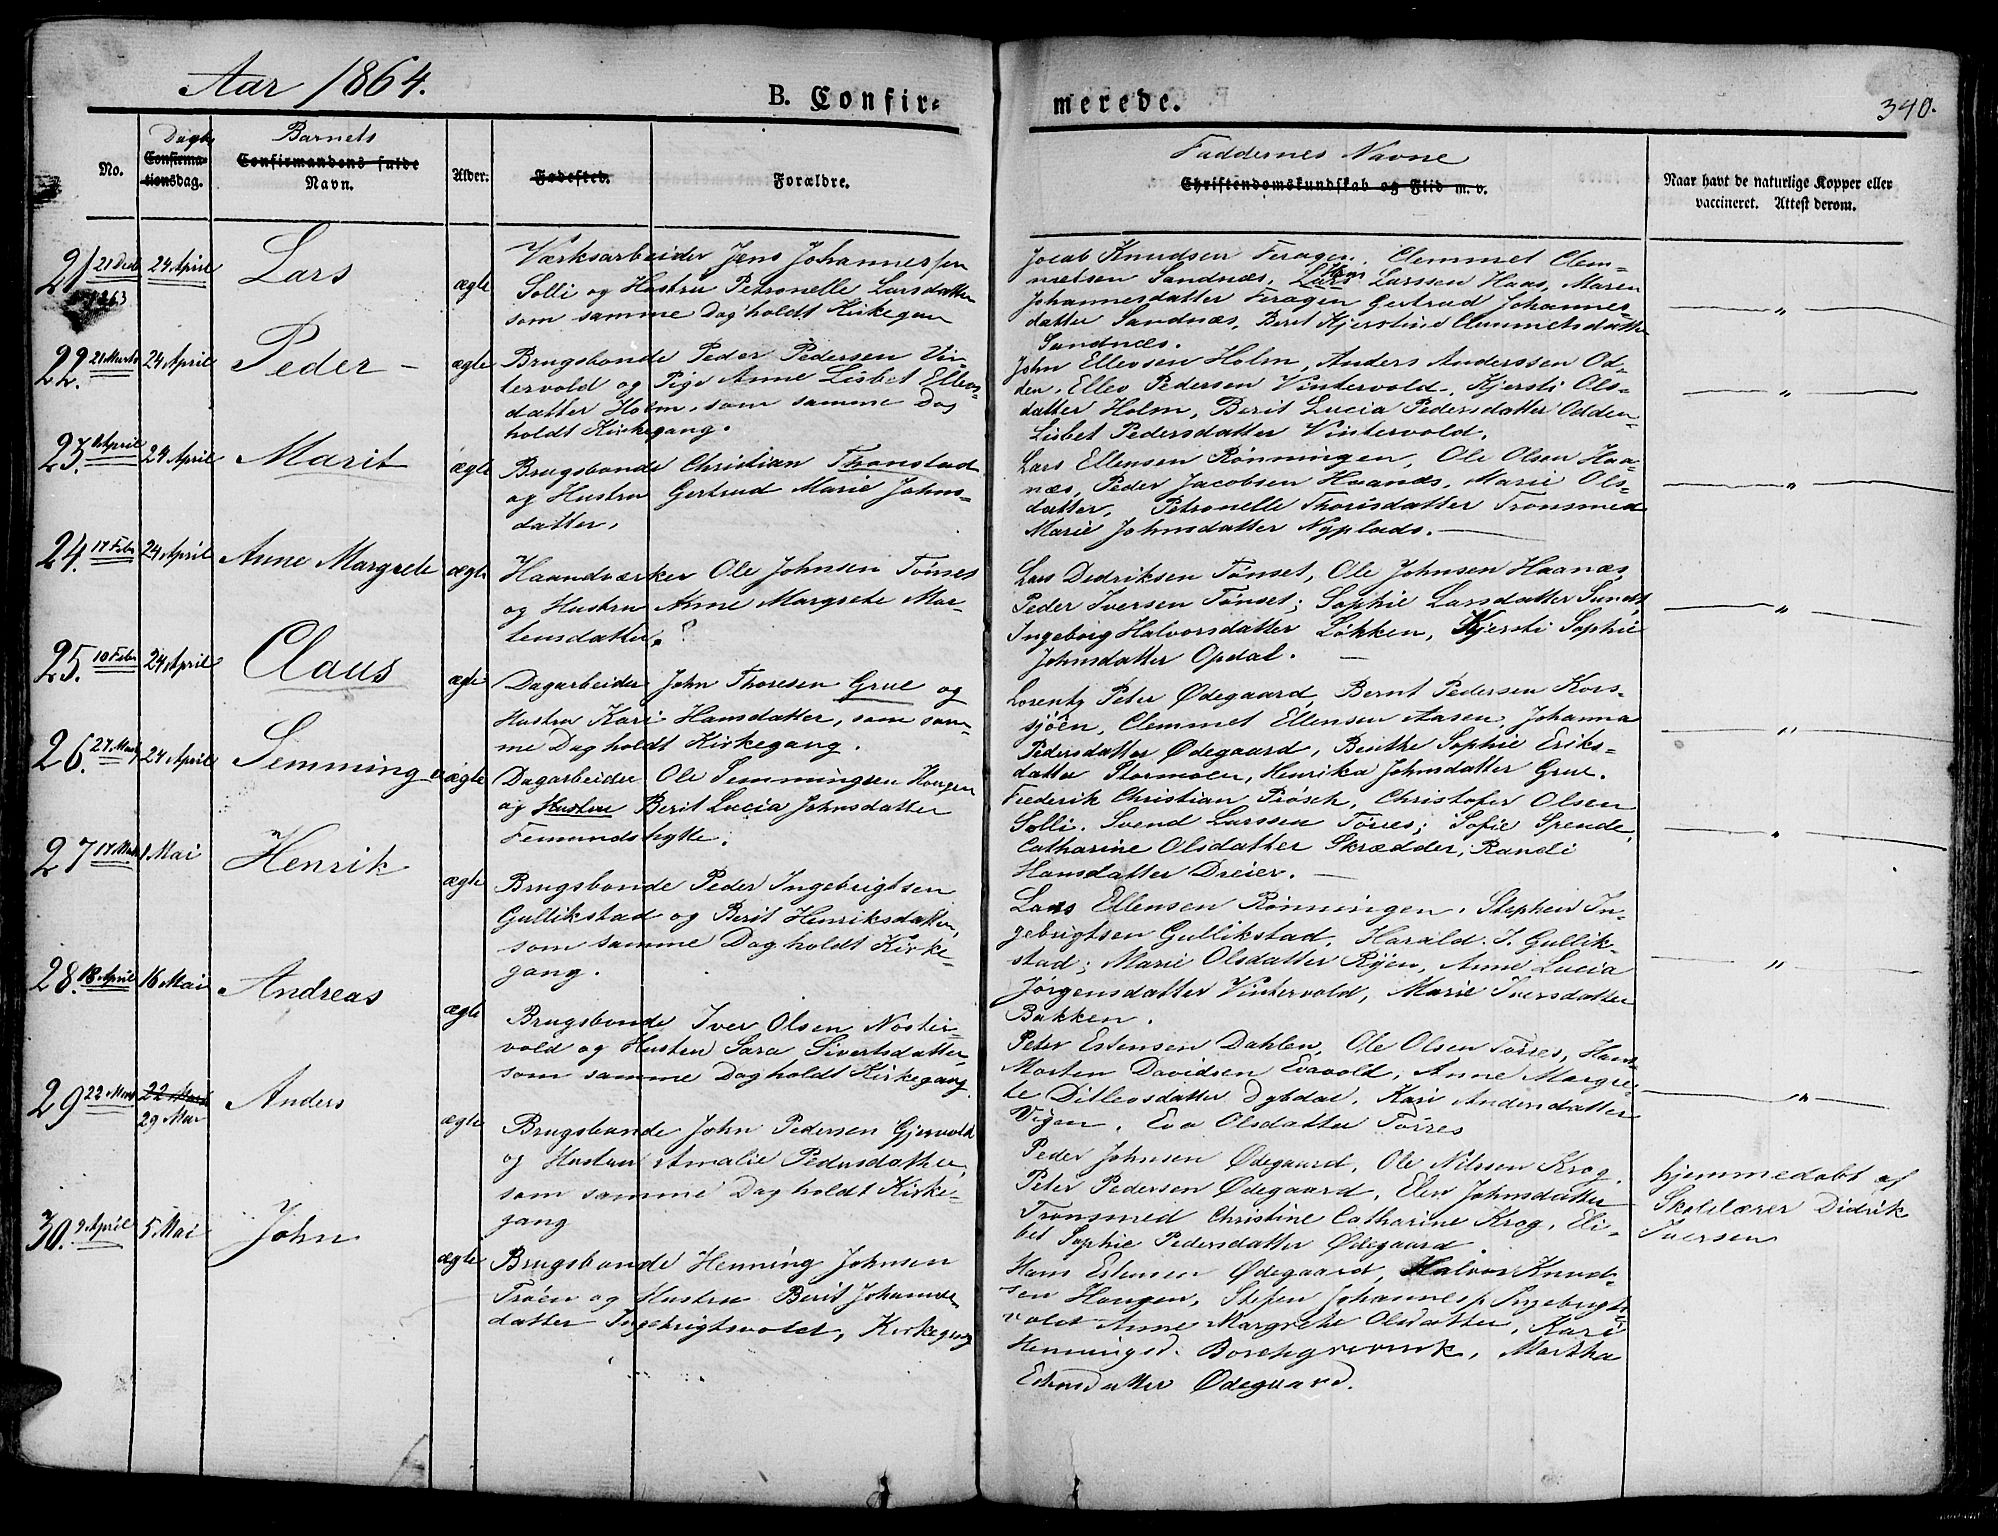 Aar 1864.
B. Confir-
merede.
340.
No.
Dagb.
Confirma-
tionsdag.
Barnets
Confirmandens fulde
Navn.
Alder.
Fødested.
Forældre.
Faddernes Navne
Christendomskundskab og Flid m. v.
Naar havt de naturlige Kopper eller
vaccineret. Attest derom.
21 21 Decb 1863 24 April Lars ægte
Værksarbeider Jens Johannessen
Solli og Hustru Petronelle Larsdatter
som samme Dag holdt Kirkegan
Jocab Knudsen Feragen, Clemmet Clem-
metsen Sandnæs, Lars Larssen Haas, Maren
Johannesdatter Feragen Gertrud Johannes-
datter Sandnæs, Berit Kjerstine Clemmetsdatter
Sandnæs.
"
22. 21 Marts 24 April Peder - ægte
Brugsbonde Peder Pedersen Vin-
tervold og Pige Anne Lisbet Ellevs-
datter Holm, som samme Dag
holdt Kirkegang.
John Ellevsen Holm, Anders Anderssen Od-
den, Ellev Pedersen Vintervold, Kjersti Ols-
datter Holm, Berit Lucia Pedersdatter Odden
Lisbet Pedersdatter Vintervold.
"
23. April 24 April Marit ægte
Brugsbonde Christian Tronstad
og Hustru Gertrud Marie Johns-
datter.
Lars Ellensen Rønningen, Ole Olsen Haa-
næs, Peder Jacobsen Haanæs, Marie Ols-
datter, Petronelle Thorisdatter Tronsmed
Marie Johnsdatter Nyplads.
"
24. 17 Febr 24 April Anne Margrete ægte
Haandværker Ole Johnsen Tønset
og Hustru Anne Margrete Mor-
tensdatter. ?
Lars Dedriksen Tønset, Ole Johnsen Haanæs
Peder Iversen Tønset; Sophie Larsdatter Sundt
Ingeborg Halvorsdatter Løkken, Kjersti Sophie
Johnsdatter Opdal. -
"
25. 10 Febr 24 April Claus ægte
Dagarbeider John Thoresen Grue og
Hustru Kari Hansdatter, som sam-
me Dag holdt Kirkegang.
Lorentz Peter Ødegaard, Bernt Pedersen Kors-
sjøen, Clemmet Ellensen Aasen, Johanna
Pedersdatter Ødegaard, Benthe Sophie Eriks-
datter Stormoen, Henrika Johnsdatter Grue.
"
26. 27 Marts 24 April Semming ægte
Dagarbeider Ole Semmingsen Haugen
og Hustru Berit Lucia Johnsdatter
Femundshytte.
Frederik Christian Prøsch, Christofer Olsen
Solli. Svend Larssen Torres; Sofie Spende,
Catharine Olsdatter Skrædder, Randi
Hansdatter Dreier. -
"
27 17 Mar 1 Mai Henrik ægte
Brugsbonde Peder Ingebrigtsen
Gullikstad og Berit Henriksdatter,
som samme Dag holdt Kirke-
gang.
Lars Ellensen Rønningen. Stephen In-
gebrigtsen Gullikstad, Harald. I. Gullik-
stad; Marie Olsdatter Ryen, Anne Lucia
Jørgensdatter Vintervold, Marie Iversdatter
Bakken.
"
28. 18 April 16 Mai Andreas ægte
Brugsbonde Iver Olsen Noster-
vold og Hustru Sara Sivertsdatter
som samme Dag holdt Kirkegang
Peter Estensen Dahlen, Ole Olsen Torres, Hans
Morten Davidsen Evavold, Anne Margre-
te Ditlevsdatter Dybdal, Kari Andersdatter
Vigen, Eva Olsdatter Torres
"
29 22 Mar 22 Mars 29 Mar Anders ægte
Brugsbonde John Pedersen Gjervold
og Hustru Amalie Pedersdatter,
som samme Dag holdt Kirke-
gang
Peder Johnsen Ødegaard, Ole Nilssen Krog,
Peter Pedersen Ødegaard, Elen Johnsdatter
Tronsmed Christine Catharine Krog, Eli-
bet Sophie Pedersdatter Ødegaard.
hjemmedøbt af
Skolelærer Didrik
Iversen
30. 9 April 5 Mai John ægte
Brugsbonde Henning Johnsen
Trøen og Hustru Berit Johannes
datter Ingebrigtsvold, Kirkegang
Hans Estensen Ødegaard, Halvor Knud-
sen Haugen, Stefen Johannesp Ingebrigts-
vold Anne Margrete Olsdatter, Kari
Henningsd. Borchgrevink, Martha
Estensdatter Ødegaard.